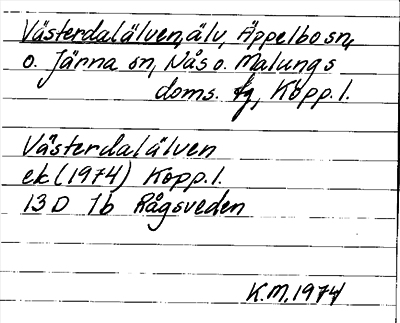 Västerdalälven, älv, Äppelbo sn,
o. Järna sn, Nås o. Malungs
doms. fg, Kopp. l.
Västerdalälven
ek (1974) Kopp. l.
13D 7b Rågsveden
K.M. 1974